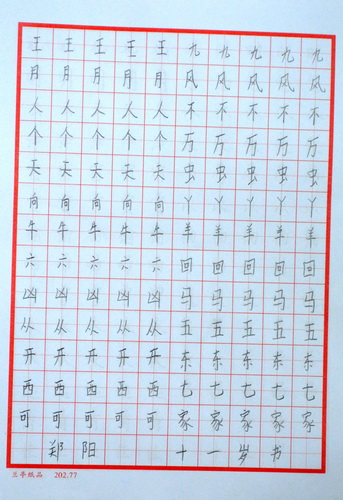 王王王王王九九九九九
月月月月月风风风风风
人人人人人不不不不不
个个个个个万万万万万
天天天天天虫虫虫虫虫
向向向向向丫丫丫丫丫
牛牛牛牛牛羊羊羊羊羊
六六六六六回回回回回
凶凶凶凶凶马马马马马
从从从从从五五五五五
开开开开开东东东东东
西西西西西七七七七七
可可可可可家家家家家
郑阳 十一岁书
兰亭纸品 202.77